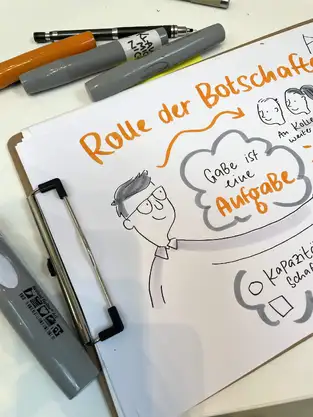 Rolle der Botschafte
Gabe ist
eine
Aufgabe
An Kolle
weiter
Kapazitä
Schaf